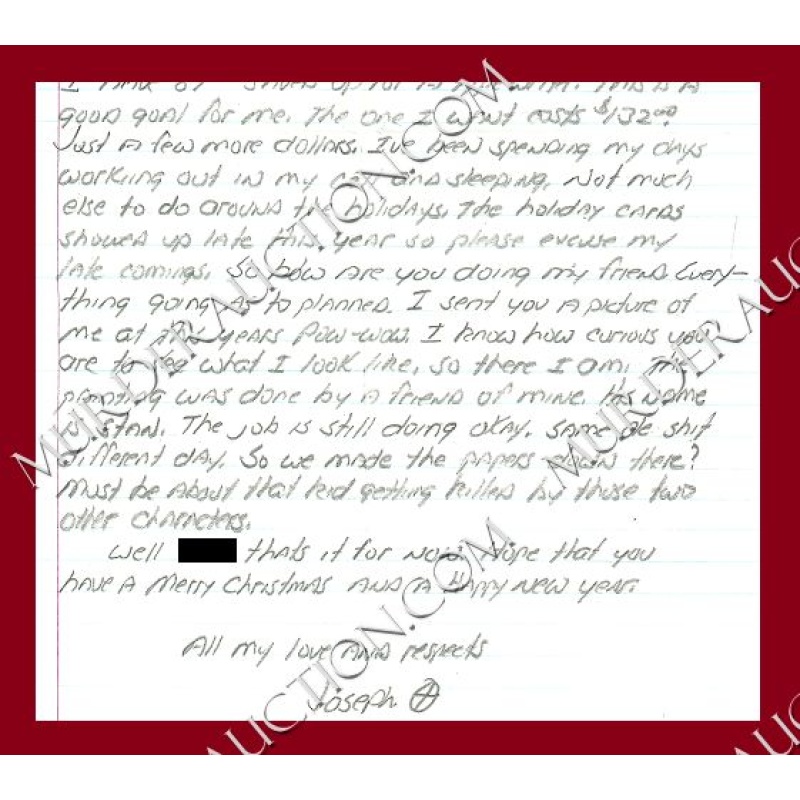 good goal for me. The one I want costs $132.00
Just a few more dollars. I've been spending my days
working out in my cell and sleeping. Not much
else to do around the holidays. The holiday cards
showed up late this year so please excuse my
late comings. So how are you doing my friend. Every-
thing going as to planned. I sent you a picture of
me at this years Pow-wow. I know how curious you
are to see what I look like, so there I am. The
painting was done by a friend of mine. His name
is Stan. The job is still doing okay. Same ole shit
different day. So we made the papers down there?
Must be about that kid getting killed by those two
other characters.
Well thats it for now. Hope that you
have a Merry Christmas and a Happy New year.
All my love and respects
Joseph
MURDERAUCTION.COM
MURDERAUCTION.COM